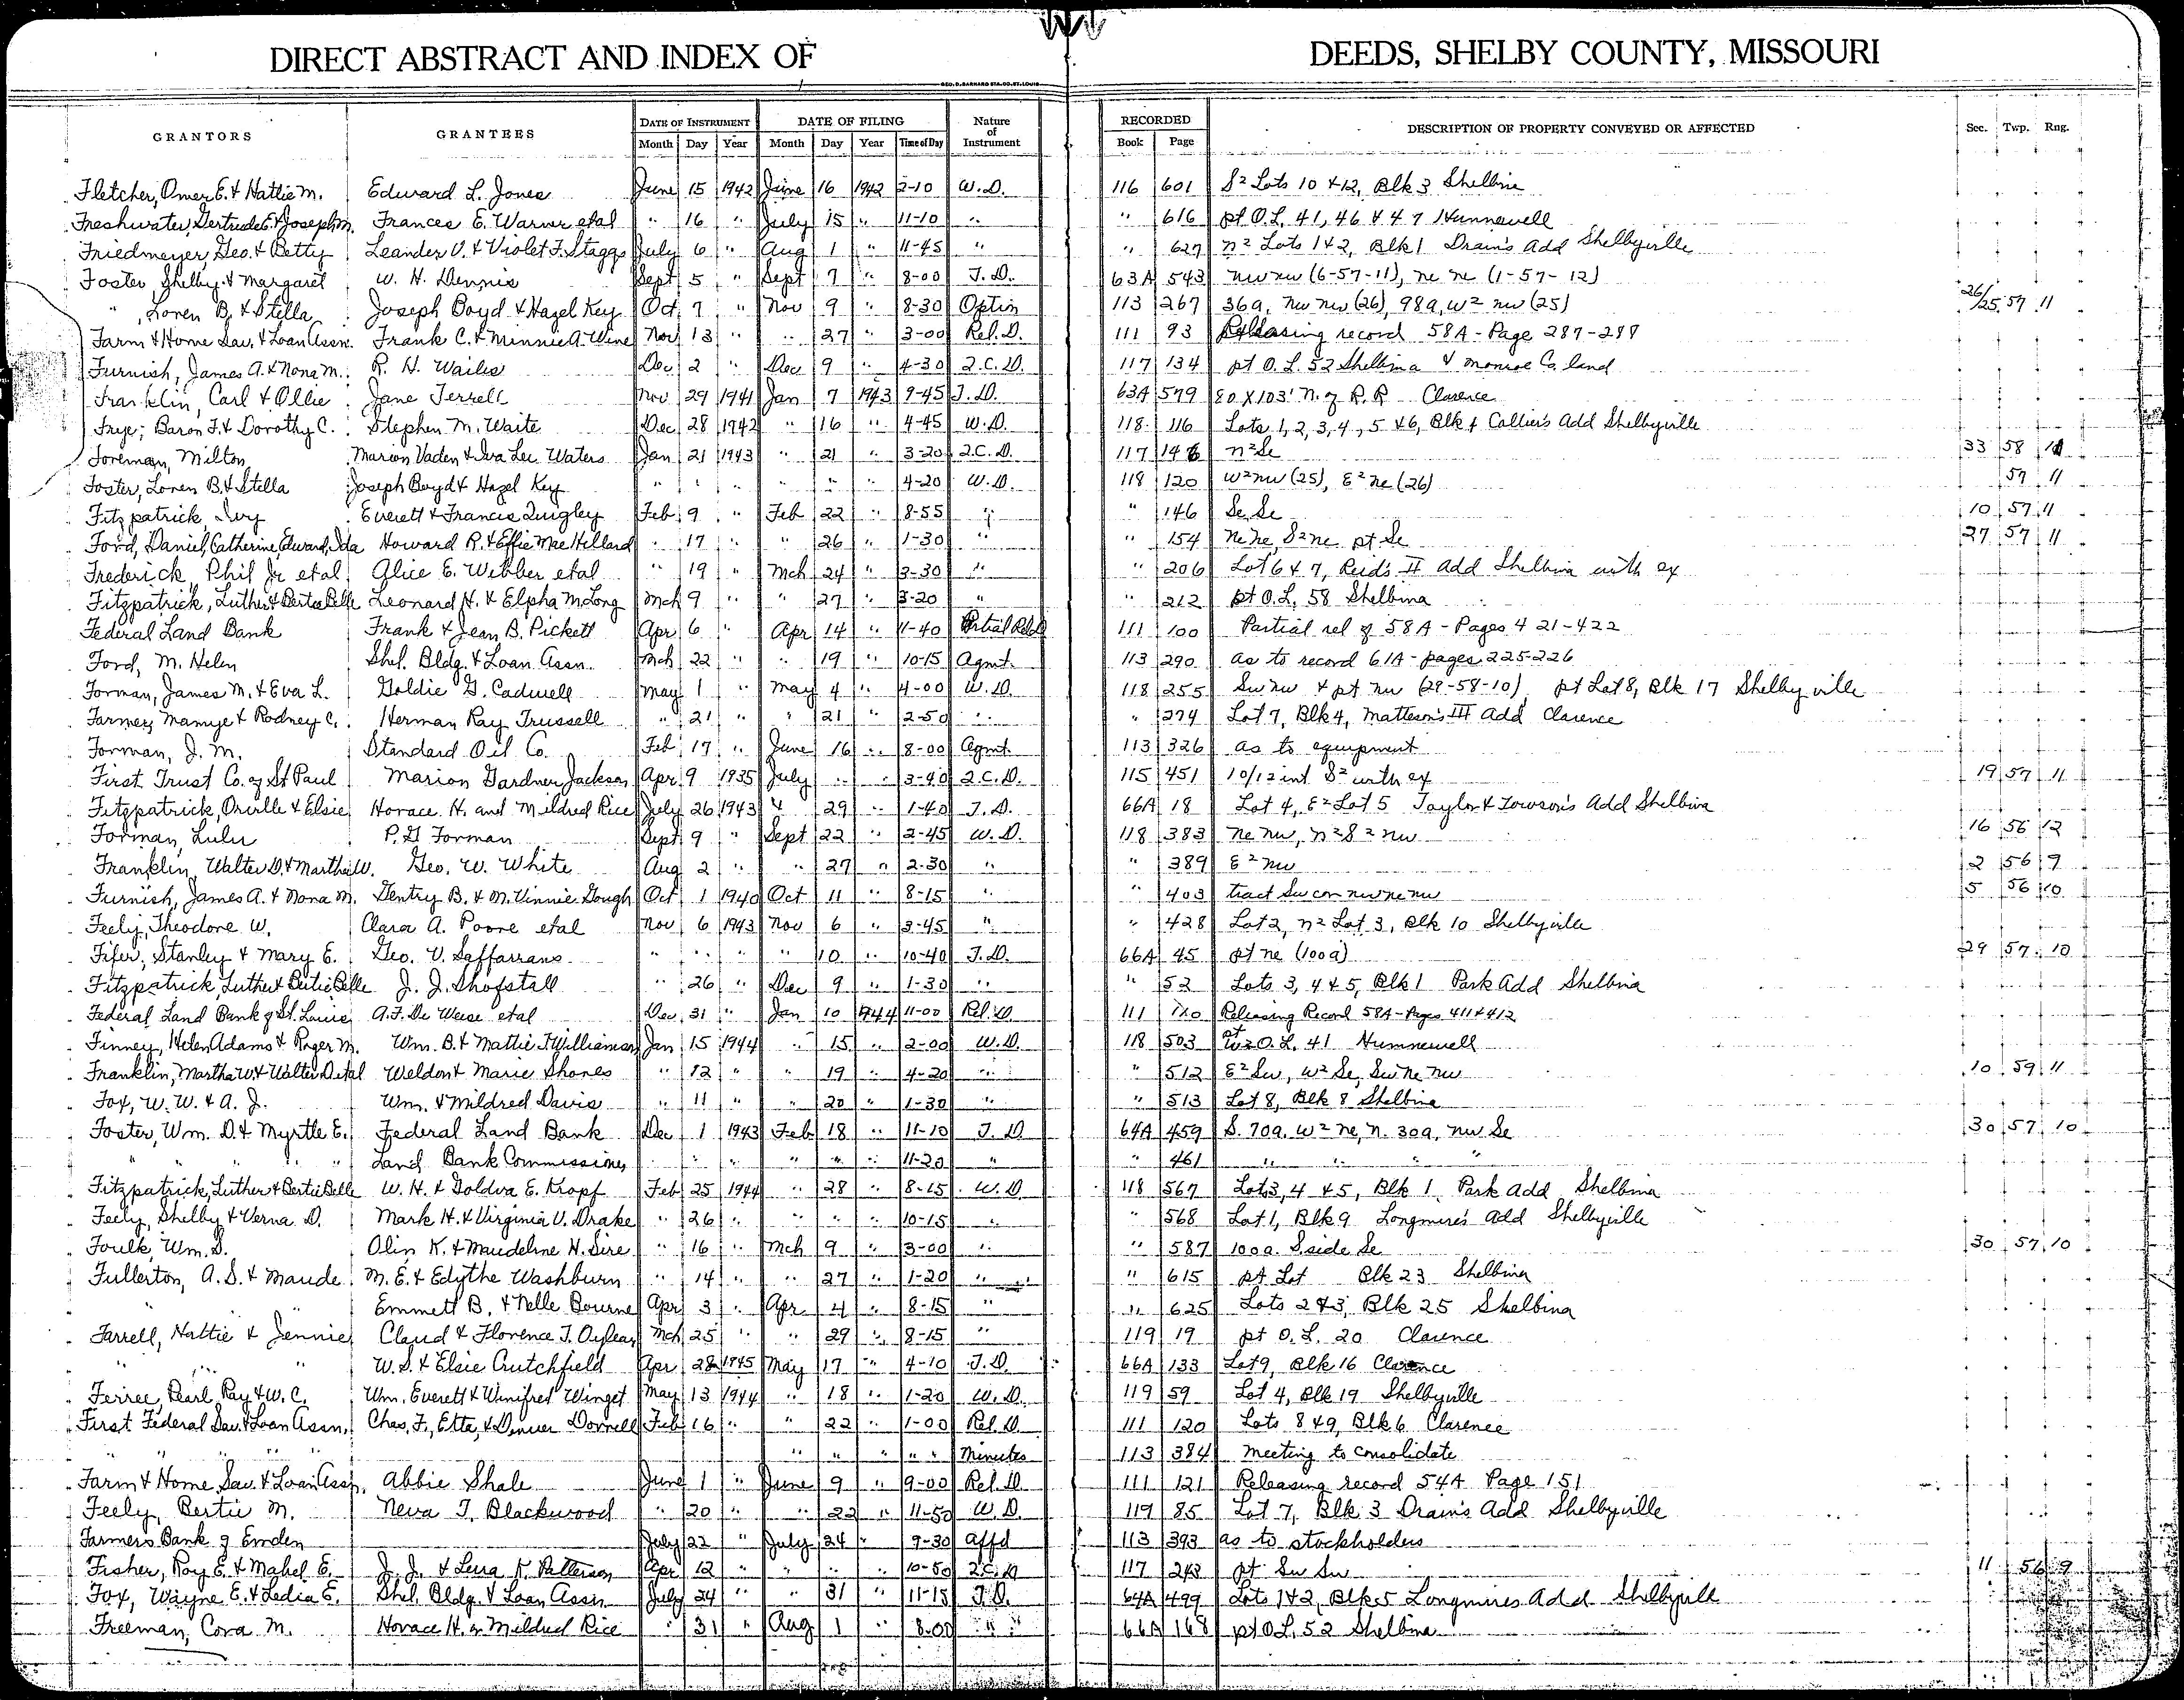 DIRECT ABSTRACT AND INDEX OF DEEDS, SHELBY COUNTY, MISSOURI
GEO. D. BARNARD STA. CO. ST. LOUIS
GRANTORS GRANTEES DATE OF INSTRUMENT DATE OF FILING Nature of Instrument RECORDED DESCRIPTION OF PROPERTY CONVEYED OR AFFECTED Sec. Twp. Rng.
Month Day Year Month Day Year Time of Day Book Page
Fletcher, Omer E. & Hattie M. Edward L. Jones June 15 1942 June 16 1942 2-10 W.D. 116 601 S² Lots 10 & 12, Blk 3 Shelbina
Freshwater, Gertrude E. & Joseph M. Frances E. Warner etal " 16 " July 15 " 11-10 " " 616 pt O.L. 41, 46 & 47 Hunnewell
Friedmeyer, Geo. & Betty Leander V. & Violet F. Staggs July 6 " Aug 1 " 11-45 " " 627 n² Lots 1 & 2, Blk 1 Drain's Add Shelbyville
Foster, Shelby & Margaret W. H. Dennis Sept 5 " Sept 7 " 8-00 T.D. 63A 543 nw nw (6-57-11), ne ne (1-57-12)
" , Loren B. & Stella Joseph Boyd & Hazel Key Oct 7 " Nov 9 " 8-30 Option 113 267 36a, nw nw (26), 98a, w² nw (25) 26/25 57 11
Farm & Home Sav. & Loan Assn. Frank C. & Minnie A. Wine Nov 13 " " 27 " 3-00 Rel. D. 111 93 Releasing record 58A - Page 287-287
Furnish, James A. & Nona M. R. H. Wailes Dec 2 " Dec 9 " 4-30 2.C.D. 117 134 pt O.L. 52 Shelbina & Monroe Co. land
Franklin, Carl & Ollie Jane Terrell Nov 29 1941 Jan 7 1943 9-45 T.D. 63A 579 80 X 103' N. of R.R. Clarence
Frye, Baron F. & Dorothy C. Stephen M. Waite Dec 28 1942 " 16 " 4-45 W.D. 118 116 Lots 1, 2, 3, 4, 5 & 6, Blk 4 Collier's Add Shelbyville
Foreman, Milton Marion Vaden & Iva Lee Waters Jan 21 1943 " 21 " 3-20 2.C.D. 117 146 n² Se 33 58 10
Foster, Loren B. & Stella Joseph Boyd & Hazel Key " " " " " " 4-20 W.D. 118 120 w² nw (25), E² ne (26) 57 11
Fitzpatrick, Ivy Everett & Francis Quigley Feb 9 " Feb 22 " 8-55 " " 146 Se Se 10 57 11
Ford, Daniel, Catherine, Edward, Ida Howard R. & Effie Mae Hillard " 17 " " 26 " 1-30 " " 154 ne ne, S² ne pt Se 27 57 11
Frederick, Phil Jr etal Alice E. Webber etal " 19 " Mch 24 " 3-30 " " 206 Lot 6 & 7, Reid's II Add Shelbina with ex
Fitzpatrick, Luther & Bertie Belle Leonard H. & Elpha M. Long Mch 9 " " 27 " 3-20 " " 212 pt O.L. 58 Shelbina
Federal Land Bank Frank & Jean B. Pickett Apr 6 " Apr 14 " 11-40 Partial Rel D 111 100 Partial rel of 58A - Pages 421-422
Ford, M. Helen Shel. Bldg. & Loan Assn. Mch 22 " " 19 " 10-15 Agmt. 113 290 as to record 61A - pages 225-226
Forman, James M. & Eva L. Goldie G. Cadwell May 1 " May 4 " 4-00 W.D. 118 255 Sw nw & pt nw (29-58-10) pt Lot 8, Blk 17 Shelbyville
Farmer, Mamye & Rodney C. Herman Ray Trussell " 21 " " 21 " 2-50 " " 274 Lot 7, Blk 4, Matteson's III Add Clarence
Forman, J. M. Standard Oil Co. Feb 17 " June 16 " 8-00 Agmt. 113 326 as to equipment
First Trust Co. of St Paul Marion Gardner Jackson Apr 9 1935 July " " 3-40 2.C.D. 115 451 10/12 int S² with ex 19 57 11
Fitzpatrick, Orville & Elsie Horace H. and Mildred Rice July 26 1943 " 29 " 1-40 T.D. 66A 18 Lot 4, E² Lot 5 Taylor & Towson's Add Shelbina
Forman, Lulu P. G Forman Sept 9 " Sept 22 " 2-45 W.D. 118 383 ne nw, n² S² nw 16 56 12
Franklin, Walter D. & Martha W. Geo. W. White Aug 2 " " 27 " 2-30 " " 389 E² nw 2 56 9
Furnish, James A. & Nona M. Gentry B. & M. Vinnie Gough Oct 1 1940 Oct 11 " 8-15 " " 403 tract Sw cor nw ne nw 5 56 10
Feely, Theodore W. Clara A. Poore etal Nov 6 1943 Nov 6 " 3-45 " " 428 Lot 2, n² Lot 3, Blk 10 Shelbyville
Fifer, Stanley & Mary E. Geo. V. Saffarrans " " " " 10 " 10-40 T.D. 66A 45 pt ne (100a) 29 57 10
Fitzpatrick, Luther & Bertie Belle J. J. Shofstall " 26 " Dec 9 " 1-30 " " 52 Lots 3, 4 & 5, Blk 1 Park Add Shelbina
Federal Land Bank of St. Louis A. F. De Weese etal Dec 31 " Jan 10 1944 11-00 Rel. D. 111 110 Releasing Record 58A - Pages 411 & 412
Finney, Helen Adams & Roger M. Wm. B. & Mattie F. Williamson Jan 15 1944 " 15 " 2-00 W.D. 118 503 pt W² O.L. 41 Hunnewell
Franklin, Martha W. & Walter D. etal Weldon & Marie Shores " 12 " " 19 " 4-20 " " 512 E² Sw, w² Se, Sw ne nw 10 59 11
Fox, W. W. & A. J. Wm. & Mildred Davis " 11 " " 20 " 1-30 " " 513 Lot 8, Blk 8 Shelbina
Foster, Wm. D. & Myrtle E. Federal Land Bank Dec 1 1943 Feb 18 " 11-10 T.D. 64A 459 S. 70a. w² ne, n. 30a, nw Se 30 57 10
" " " Land Bank Commissioner " " " " " " 11-20 " " 461 " " " "
Fitzpatrick, Luther & Bertie Belle W. H. & Goldva E. Kropf Feb 25 1944 " 28 " 8-15 W.D. 118 567 Lots 3, 4 & 5, Blk 1 Park Add Shelbina
Feely, Shelby & Verna D. Mark H. & Virginia V. Drake " 26 " " " " 10-15 " " 568 Lot 1, Blk 9 Longmire's Add Shelbyville
Foulk, Wm. S. Olin K. & Maudeline H. Sire " 16 " Mch 9 " 3-00 " " 587 100a. S. side Se 30 57 10
Fullerton, A. S. & Maude M. E. & Edythe Washburn " 14 " " 27 " 1-20 " " 615 pt Lot Blk 23 Shelbina
" Emmett B. & Nelle Bourne Apr 3 " Apr 4 " 8-15 " " 625 Lots 2 & 3, Blk 25 Shelbina
Farrell, Hattie & Jennie Claud & Florence T. Mch 25 " " 29 " 8-15 " 119 19 pt O.L. 20 Clarence
" " " W. S. & Elsie Crutchfield Apr 28 1945 May 17 " 4-10 T.D. 66A 133 Lot 9, Blk 16 Clarence
Ferree, Pearl Ray & W. C. Wm. Everett & Winifred Winget May 13 1944 " 18 " 1-20 W.D. 119 59 Lot 4, Blk 19 Shelbyville
First Federal Sav. & Loan Assn. Chas. F., Etta, & Denver Dorrell Feb 16 " " 22 " 1-00 Rel. D. 111 120 Lots 8 & 9, Blk 6 Clarence
" " " " " " " " " Minutes 113 384 meeting to consolidate
Farm & Home Sav. & Loan Assn. Abbie Shale June 1 " June 9 " 9-00 Rel. D. 111 121 Releasing record 54A Page 151
Feely, Bertie M. Neva T. Blackwood " 20 " " 22 " 11-50 W.D. 119 85 Lot 7, Blk 3 Drain's Add Shelbyville
Farmers Bank of Emden July 22 " July 24 " 9-30 Affd 113 393 as to stockholders
Fisher, Roy E. & Mabel E. J. J. & Lura K. Patterson Apr 12 " " " " 10-50 2.C.D 117 243 pt Sw Sw 11 56 9
Fox, Wayne E. & Ledia E. Shel. Bldg. & Loan Assn July 24 " " 31 " 11-15 T.D. 64A 499 Lots 1 & 2, Blk 5 Longmires Add Shelbyville
Freeman, Cora M. Horace H. or Mildred Rice " 31 " Aug 1 " 8-00 " " 66A 168 pt O.L. 52 Shelbina